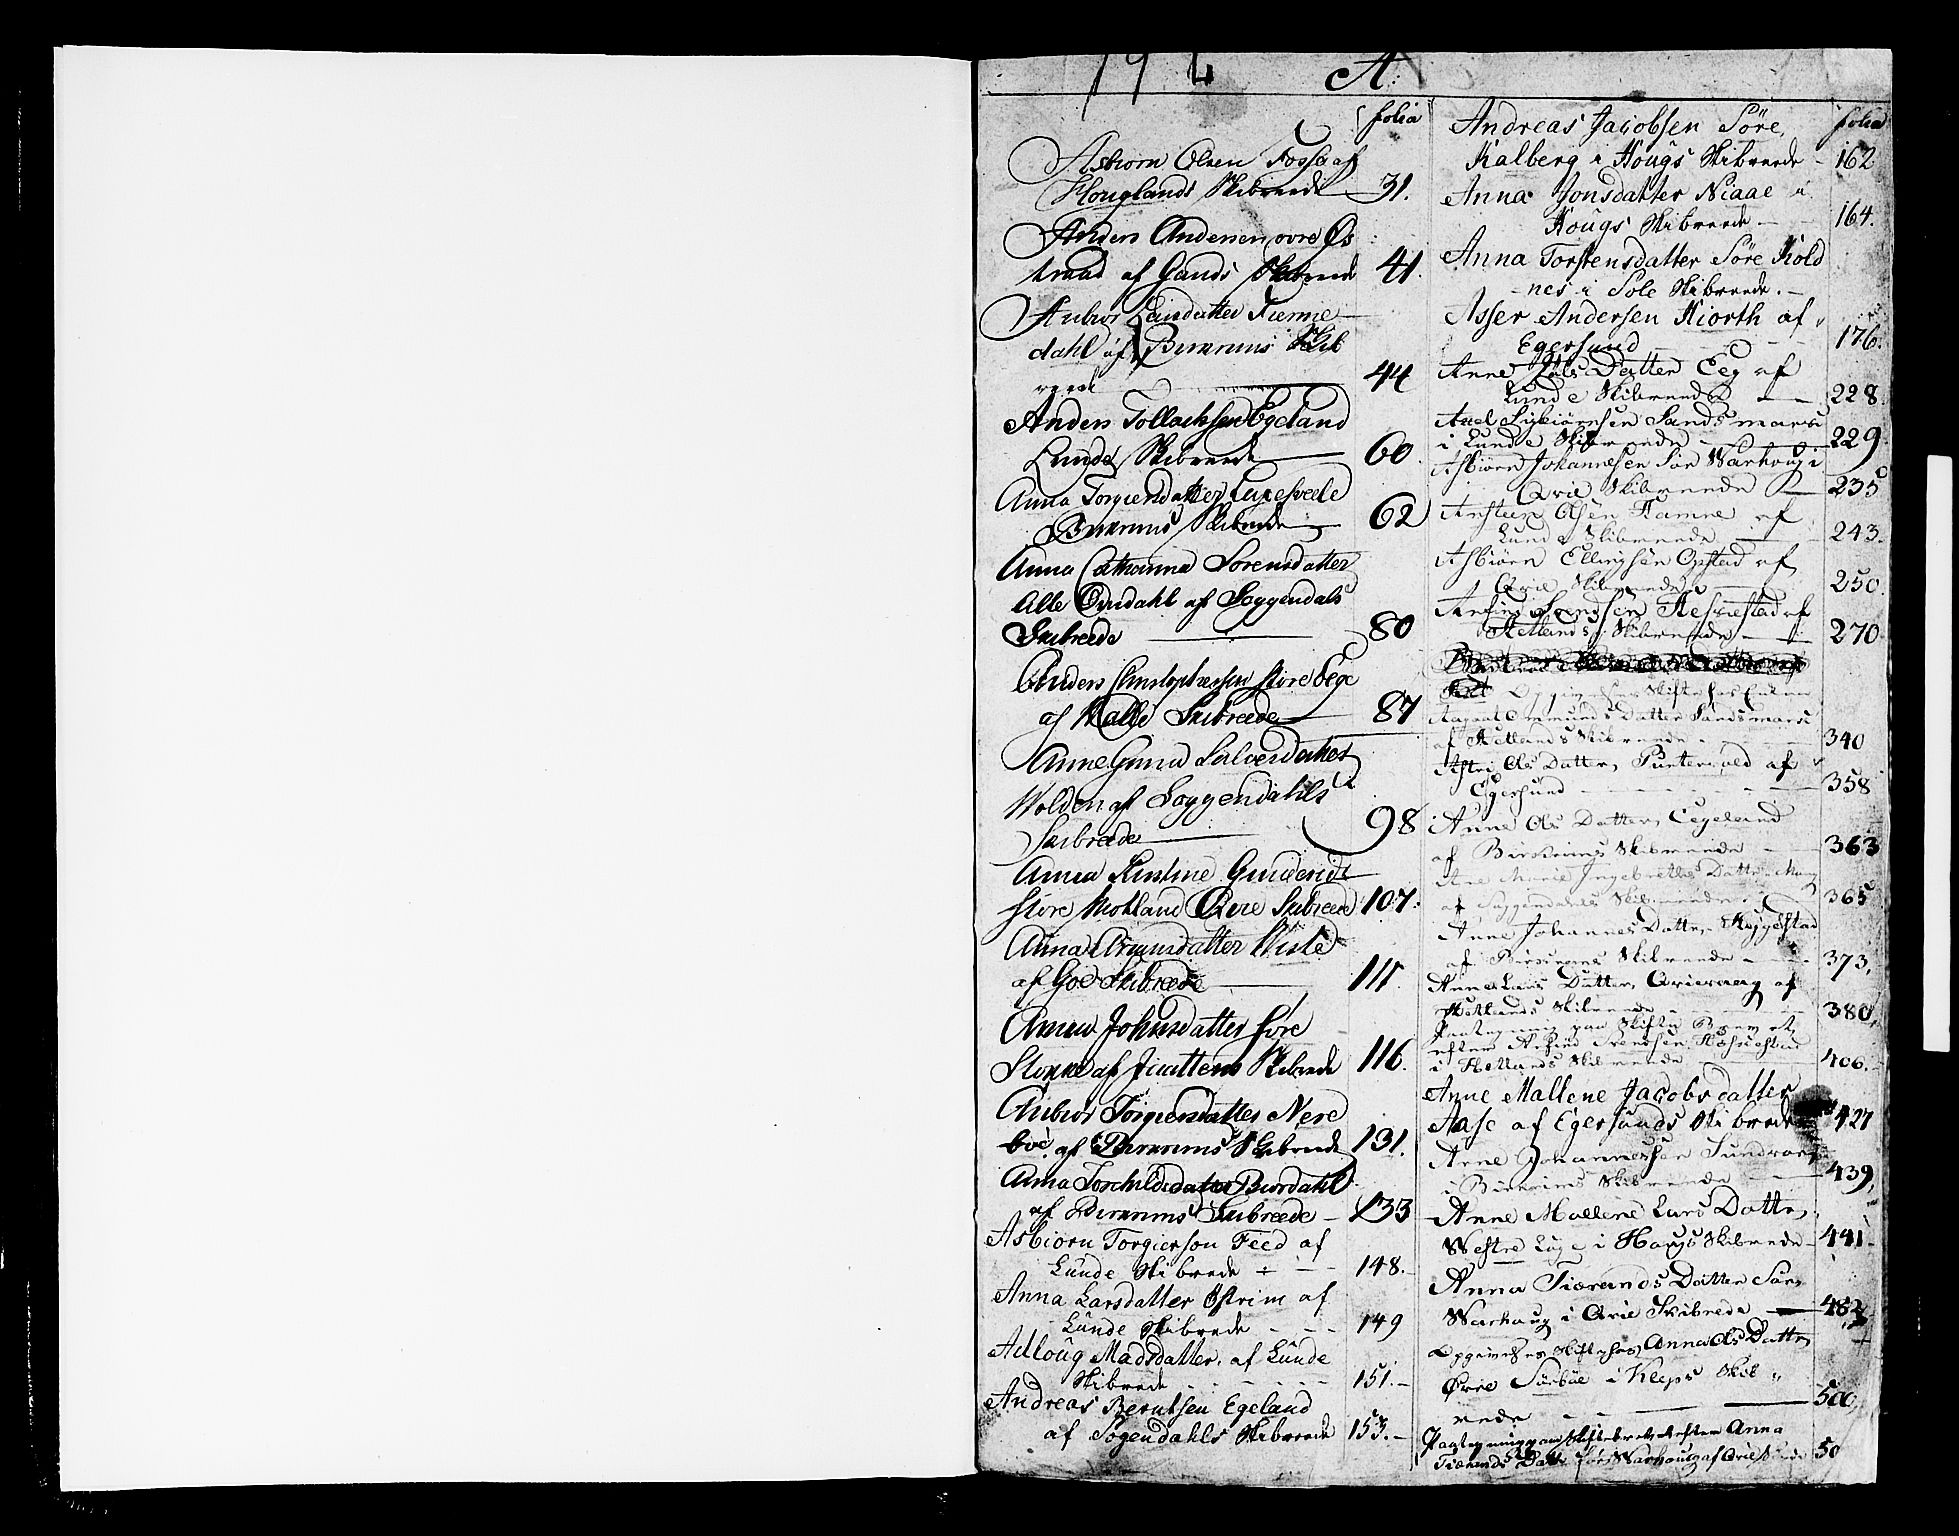 A
folia
Asbiorn Olsen Fossa af
Houglands Skibreede 31.
Anders Andersen ovre Øs
traad af Gands Skibrede 41.
Aubior Larsdatter Fiemie
dahl af Birkrems Skib
reede 44
Anders Tollachsen Egeland
Lunde Skibreede 60
Anna Torgiersdatter
Birkrems Skibrede 62
Anna Catharina Sorensdatter
Alle Øvredahl af Soggendals
Skibreede 80
Anders Christophersen Store Eege
af Walle Skibreede 87
Anne Gunild Salvesdatter
Wolden af Soggendahls
Skibrede 98
Anna Kirstine
Store Mohland Qvie Skibreede 107.
Anna Asmunsdatter Wiste
af Goe Skibrede 111
Anna Johnsdatter Søre
Stokke af Jaatten Skibrede 116.
Aubior Torgiersdatter Nere
boe af Birkrems Skibrede 131.
Anna Torchildsdatter Biordahl
af Birkrems Skibreede 133
Asbiorn Torgierson Feed af
Lunde Skibrede 148.
Anna Larsdatter Østrim af
Lunde Skibrede 149
Adloug Madsdatter af Lunde
Skibrede 151.
Andreas Berntsen Egeland
af Sogendahls Skibrede 153.
folia
Andreas Jacobsen Søre
Kalberg i Hougs Skibreede 162
Anna Jonsdatter Niaae i
Hougs Skibrede 164.
Anna Torstensdatter Søre Kold
nes i Sole Skibreede.
Asser Andersen Hiorth af
Egersund 176.
Anne Lars Datter Eeg af
Lunde Skibreede 228
Axel Sigbiørnsen Sandsmark
i Lunde Skibreede 229
Asbiørn Johannesen Sør Warhoug i
Qvie Skibreede 235
Ansteen Olsen Hamre af
Lunde Skibreede 243.
Asbiørn Ellingsen Opstad af
Qvie Skibreede 250.
Arfind Svendsen Hesnestad af
Hetlands Skibreede 270
Opgivelses Skifte
Aagaat Ommunds Datter Sandsmark
af Hetlands Skibreede 340
Astri Ols Datter Puntervold af
Egersund 358
Anne Ols Datter Eegeland
af Birkrims Skibreede 363
Ane Marie Ingebretles Datter Mong
af Soggendahls Skibreede 365
Anne Johannes Datter Skygestad
af Birkrems Skibreede 373,
Anne Lars Datter Qvieraag af
Hetlands Skibreede 380
Paategning paa Skifte Brevet
efter Arfind Svendsen Hesnestad
i Hetlands Skibreede 406.
Anne Mallene Jacobsdatter
Aase af Egersunds Skibrede 427
Arne Johannessen Sundvor
i Birkrims Skibreede 439,
Anne Mallene Lars Datter
Westre Lyge i Hougs Skibrede 441
Anna Tiærands Datter Sør
Warhaug i Qvie Skibrede 482
Opgivelses Skifte efter Anna Ols Datter
Øvre Sørbøe i Kleps Skib
rede 500
Paategning paa Skiftebrevet efter Anna
Tiærands Datter Sør Warhoug af Qvie 50